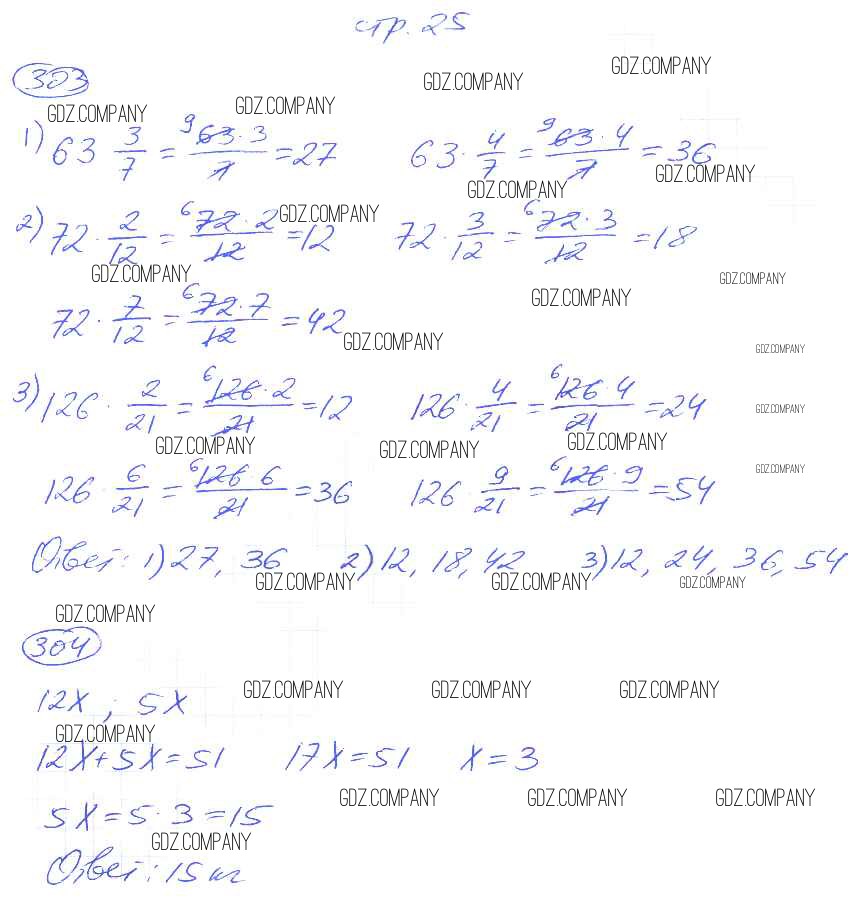 стр. 25
303 GDZ.COMPANY GDZ.COMPANY GDZ.COMPANY GDZ.COMPANY
1) 63 3/7 = 9 63·3/7 = 27 63·4/7 = 9 63·4/7 = 36
GDZ.COMPANY GDZ.COMPANY
2) 72·2/12 = 6 72·2/12 = 12 GDZ.COMPANY 72·3/12 = 6 72·3/12 = 18
GDZ.COMPANY GDZ.COMPANY
72·7/12 = 6 72·7/12 = 42 GDZ.COMPANY GDZ.COMPANY GDZ.COMPANY
3) 126·2/21 = 6 126·2/21 = 12 126·4/21 = 6 126·4/21 = 24 GDZ.COMPANY
GDZ.COMPANY GDZ.COMPANY GDZ.COMPANY
126·6/21 = 6 126 6/21 = 36 126·9/21 = 6 126·9/21 = 54 GDZ.COMPANY
Ответ: 1) 27, 36 2) 12, 18, 42 3) 12, 24, 36, 54
GDZ.COMPANY GDZ.COMPANY GDZ.COMPANY
GDZ.COMPANY
304
GDZ.COMPANY GDZ.COMPANY GDZ.COMPANY
12x ; 5x
GDZ.COMPANY
12x+5x=51 17x=51 x=3
GDZ.COMPANY GDZ.COMPANY GDZ.COMPANY
5x=5·3=15
GDZ.COMPANY
Ответ: 15 кг